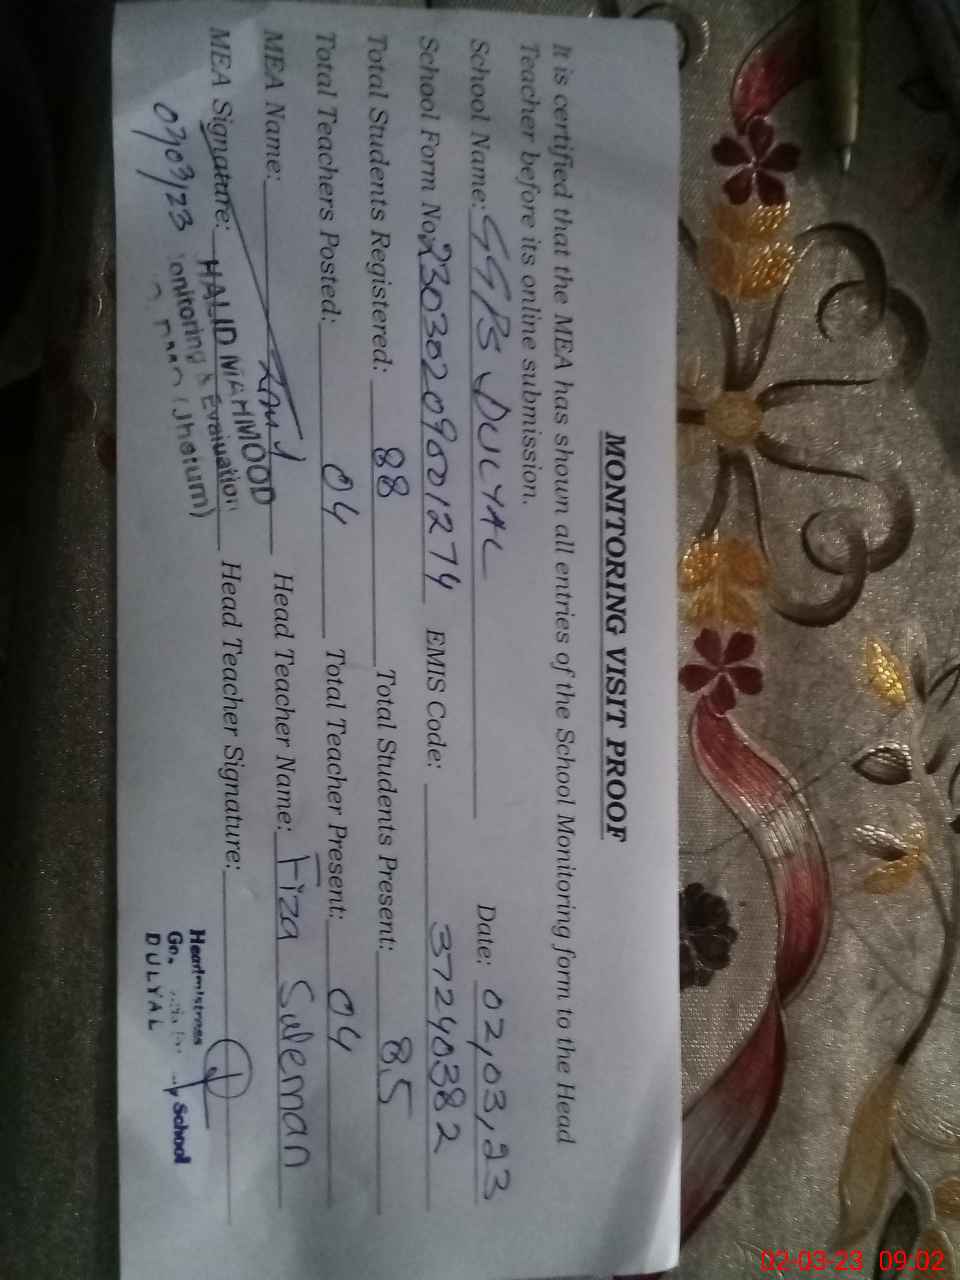 MONITORING VISIT PROOF
It is certified that the MEA has shown all entries of the School Monitoring form to the Head
Teacher before its online submission.
School Name: GGPS DULYAL Date: 02,03,23
School Form No. EMIS Code: 37240382
Total Students Registered: 88 Total Students Present: 85
Total Teachers Posted: 04 Total Teacher Present: 04
MEA Name: Head Teacher Name: Fiza Suleman
MEA Signature: Head Teacher Signature:
HALID MAHMOOD
onitoring & Evaluation
(Jhelum)
Headmistress
School
DULYAL
02-03-23 09:02